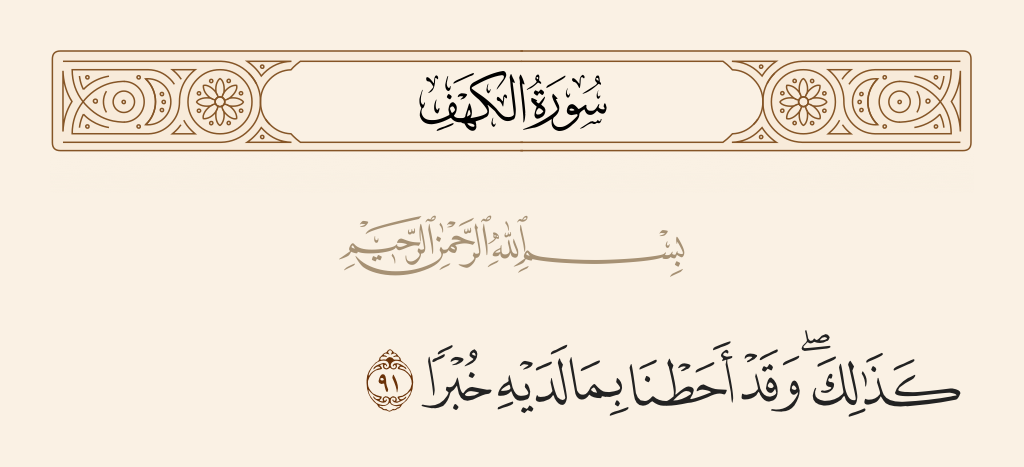 سُورَةُ الكَهْفِ
بِسْمِ ٱللَّهِ ٱلرَّحْمَٰنِ ٱلرَّحِيمِ
كَذَٰلِكَۖ وَقَدْ أَحَطْنَا بِمَا لَدَيْهِ خُبْرًا ٩١